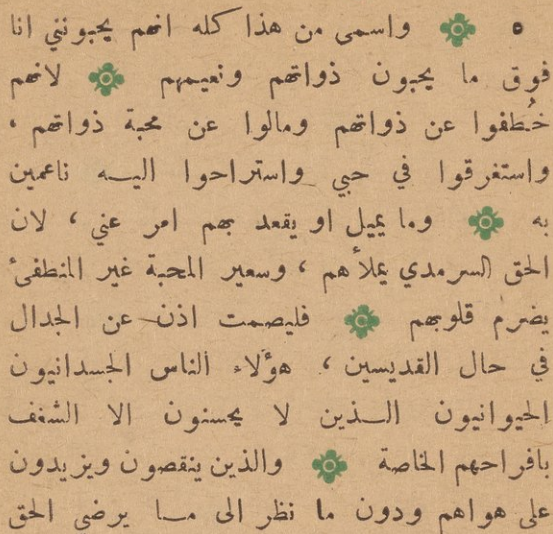 ٥ واسمى من هذا كله انهم يحبونني انا
فوق ما يحبون ذواتهم ونعيمهم لانهم
خُطفوا عن ذواتهم ومالوا عن محبة ذواتهم ،
واستغرقوا في حبي واستراحوا اليه ناعمين
به وما يميل او يقعد بهم امر عني ، لان
الحق السرمدي يملأهم ، وسعير المحبة غير المنطفئ
يضرم قلوبهم فليصمت اذن عن الجدال
في حال القديسين ، هؤلاء الناس الجسدانيون
الحيوانيون الذين لا يحسنون الا الشغف
بافراحهم الخاصة والذين ينقصون ويزيدون
على هواهم ودون ما نظر الى ما يرضى الحق